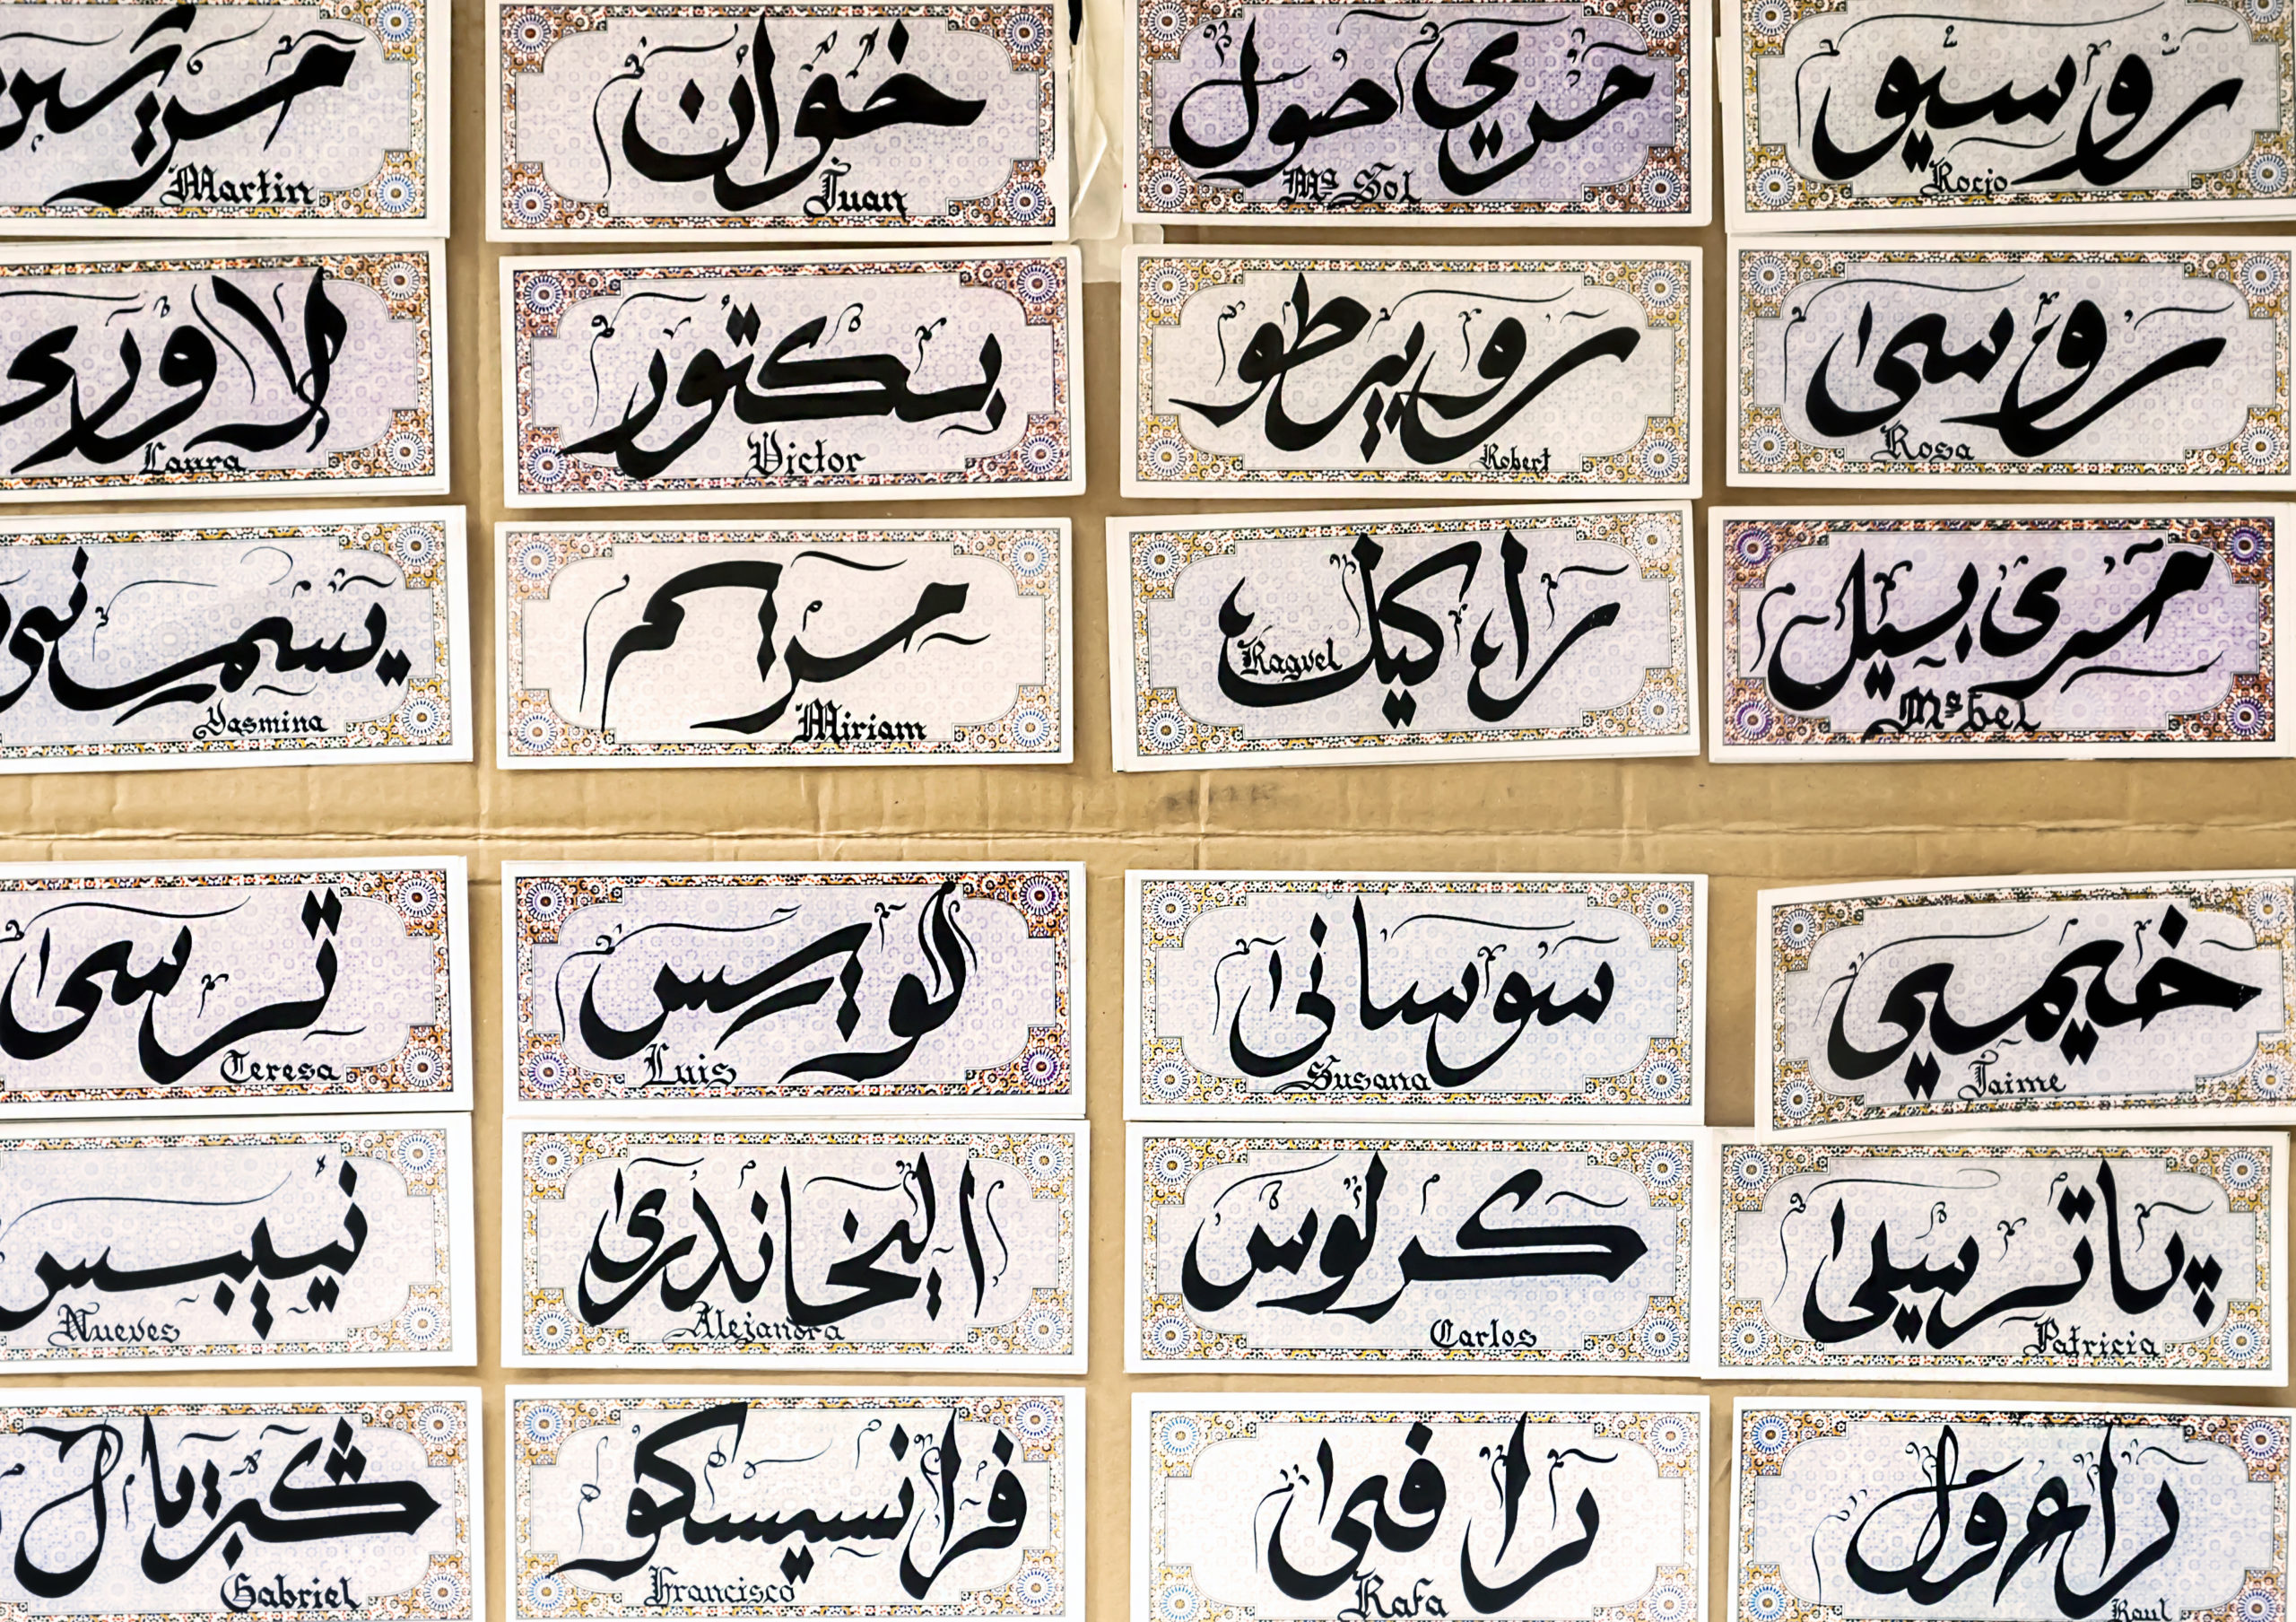 مرتين
Martin
خوان
Juan
مري صول
Mª Sol
روسيو
Rocio
لاوري
Laura
بكتور
Victor
روبيرطو
Robert
روسى
Rosa
Yasmina
مريم
Miriam
راكيل
Raquel
مرى بيل
Mª bel
ترسى
Teresa
لويس
Luis
سوسانى
Susana
خيمي
Jaime
نييبس
Nueves
اليخاندرى
Alejandra
كرلوس
Carlos
پاترسيى
Patricia
Gabriel
فرانسيسكو
Francisco
رافى
Rafa
راوول
Raul